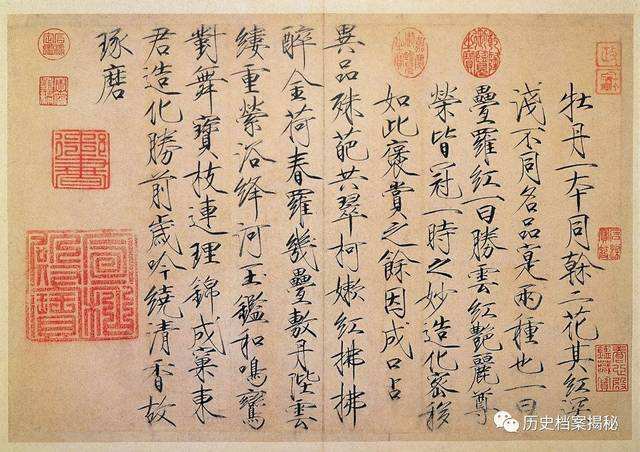 牡丹一本同幹二花其紅深
淺不同名品寔兩種也一曰
疊羅紅一曰勝雲紅艷麗尊
榮皆冠一時之妙造化密移
如此褒賞之餘因成口占
異品殊葩共翠柯嫩紅拂拂
醉金荷春羅幾疊敷丹陛雲
縷重縈浴絳河玉鑑和鳴鸞
對舞寶枝連理錦成窠東
君造化勝前歲吟繞清香故
琢磨
历史档案揭秘